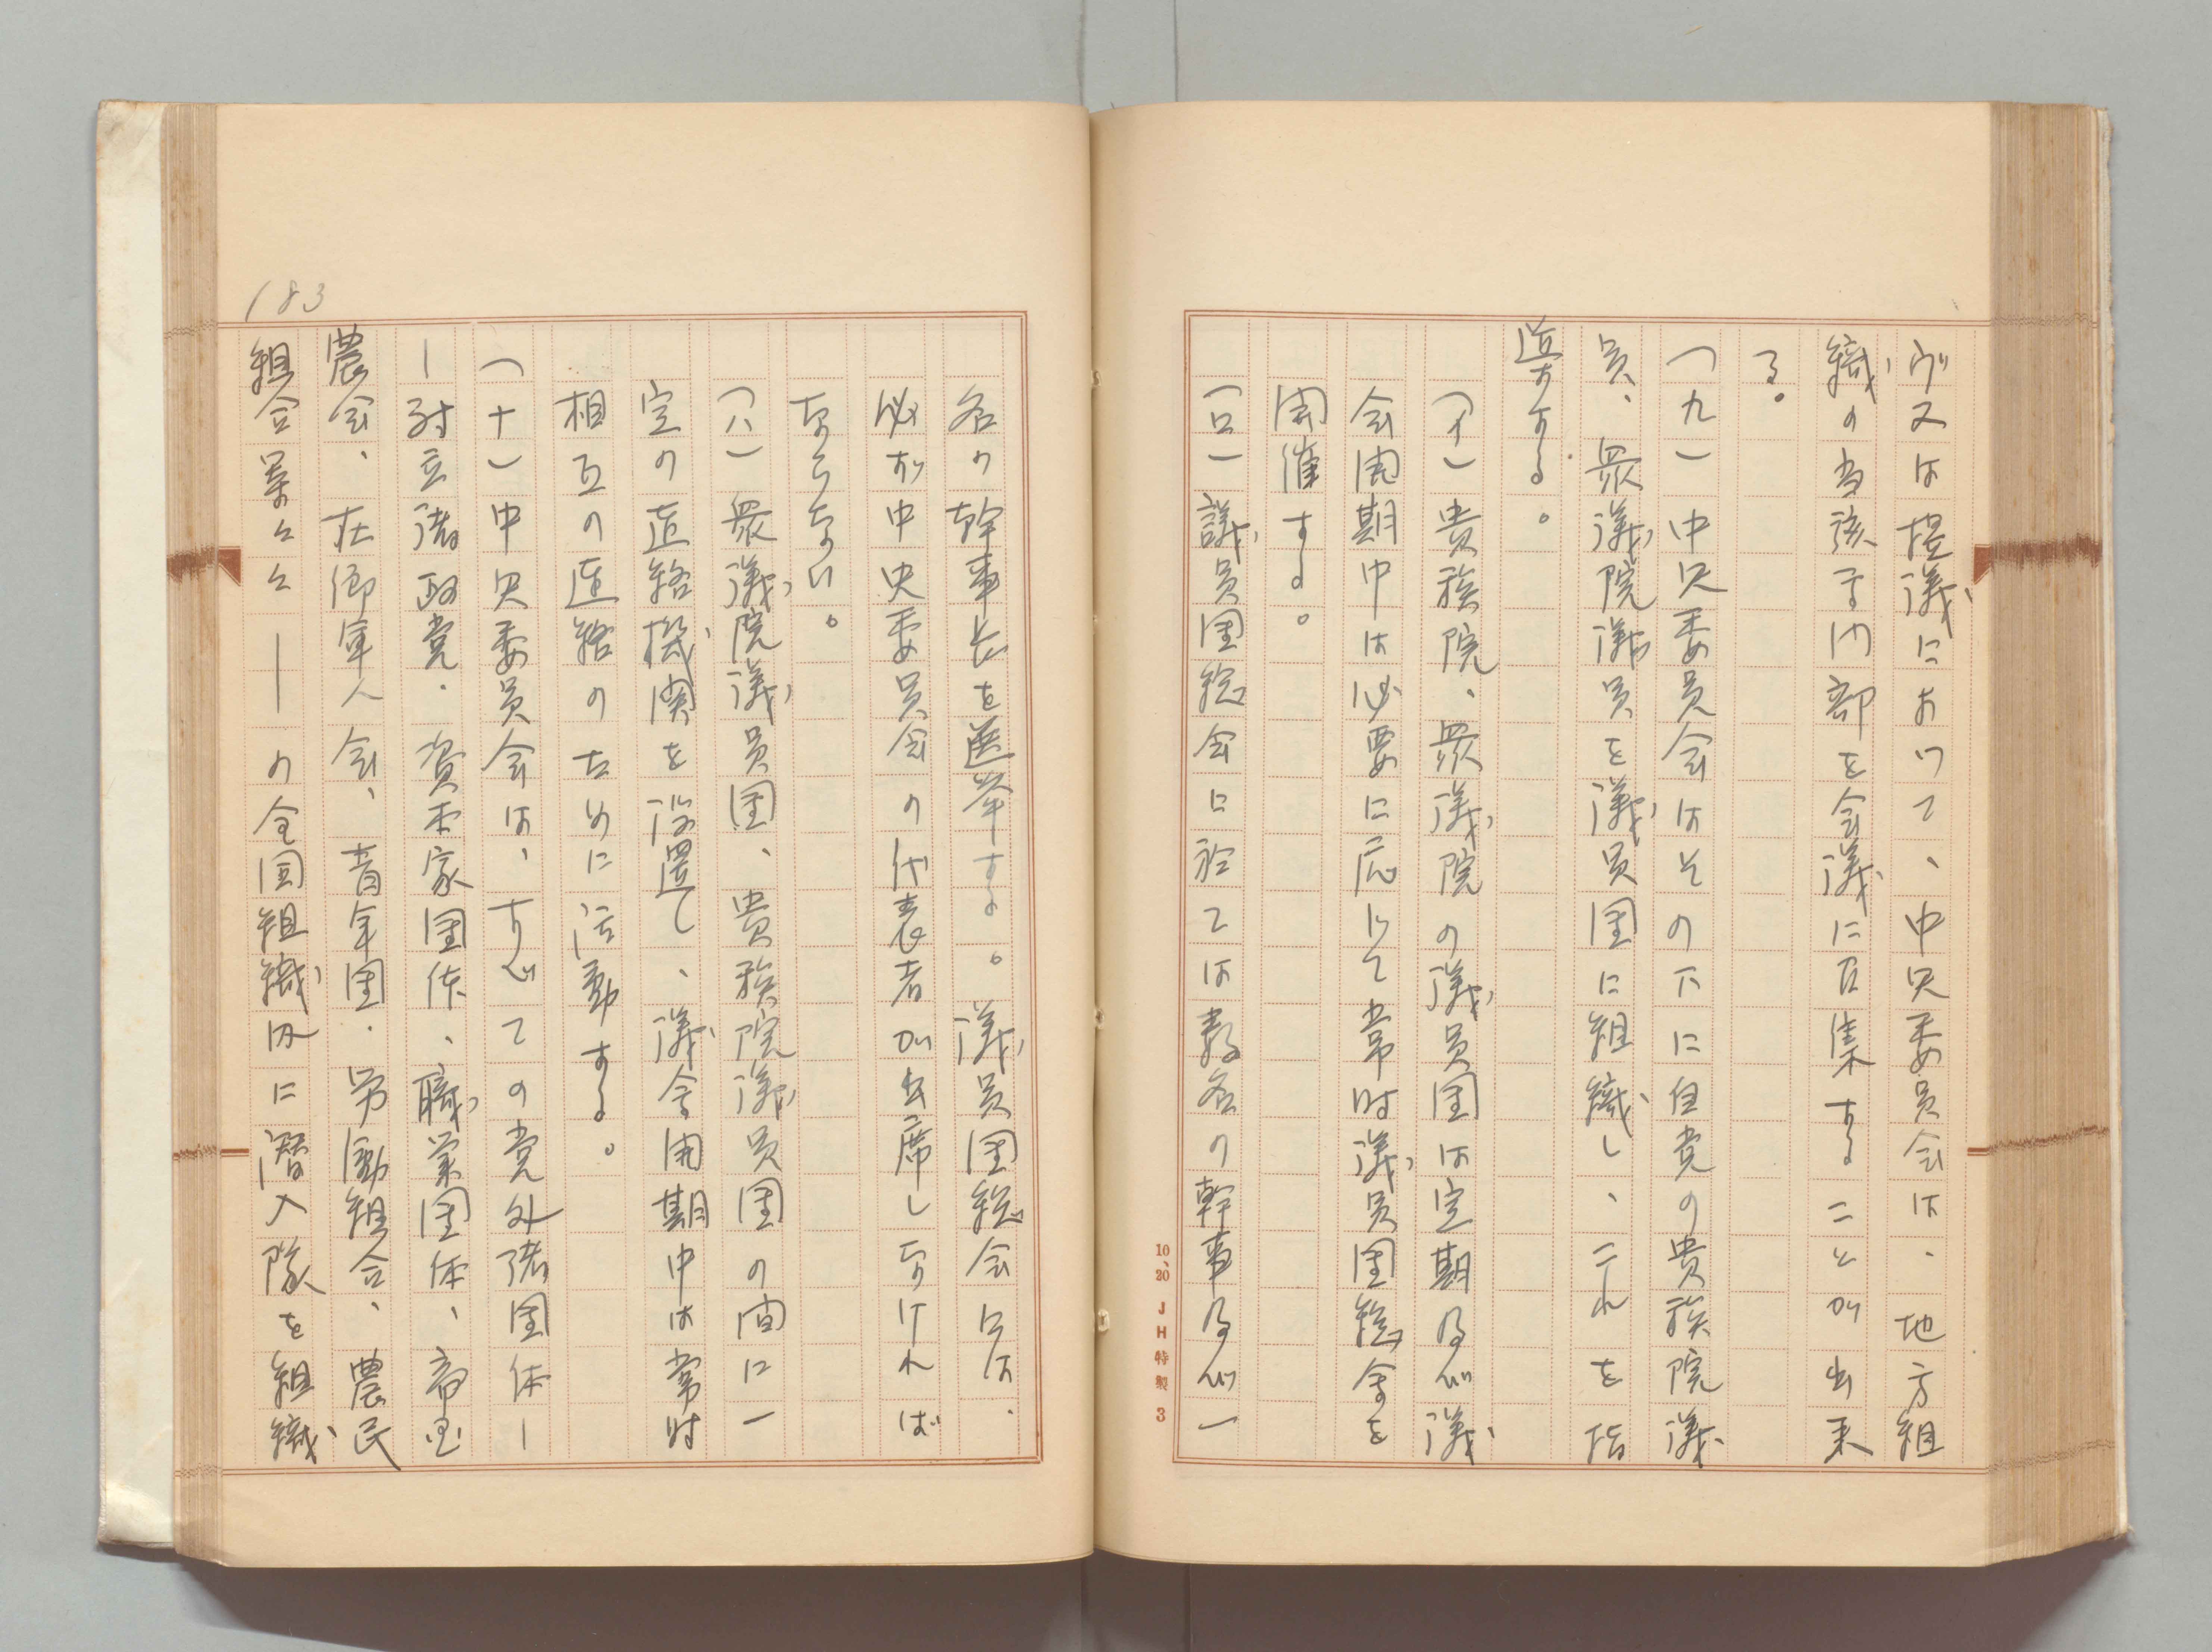 び又は提議において、中央委員会は、地方組
織の当該専門部を会議に召集することが出来
る。
(九)中央委員会はその下に自党の貴族院議
員、衆議院議員を議員団に組織し、これを指
導する。
(イ)貴族院、衆議院の議員団は定期及び議
会開期中は必要に応じて常時議員団総会を
開催する。
(ロ)議員団総会に於ては数名の幹事及び一
名の幹事長を選挙する。議員団総会には、
必ず中央委員会の代表者が出席しなければ
ならない。
(ハ)衆議院議員団、貴族院議員団の間に一
定の連絡機関を設置し、議会開期中は常時
相互の連絡のために活動する。
(十)中央委員会は、すべての党外諸団体―
―対立諸政党・資本家団体、職業団体、帝国
農会、在郷軍人会、青年団・労働組合、農民
組合等々々――の全国組織内に潜入隊を組織
183
10、20 JH特製 3